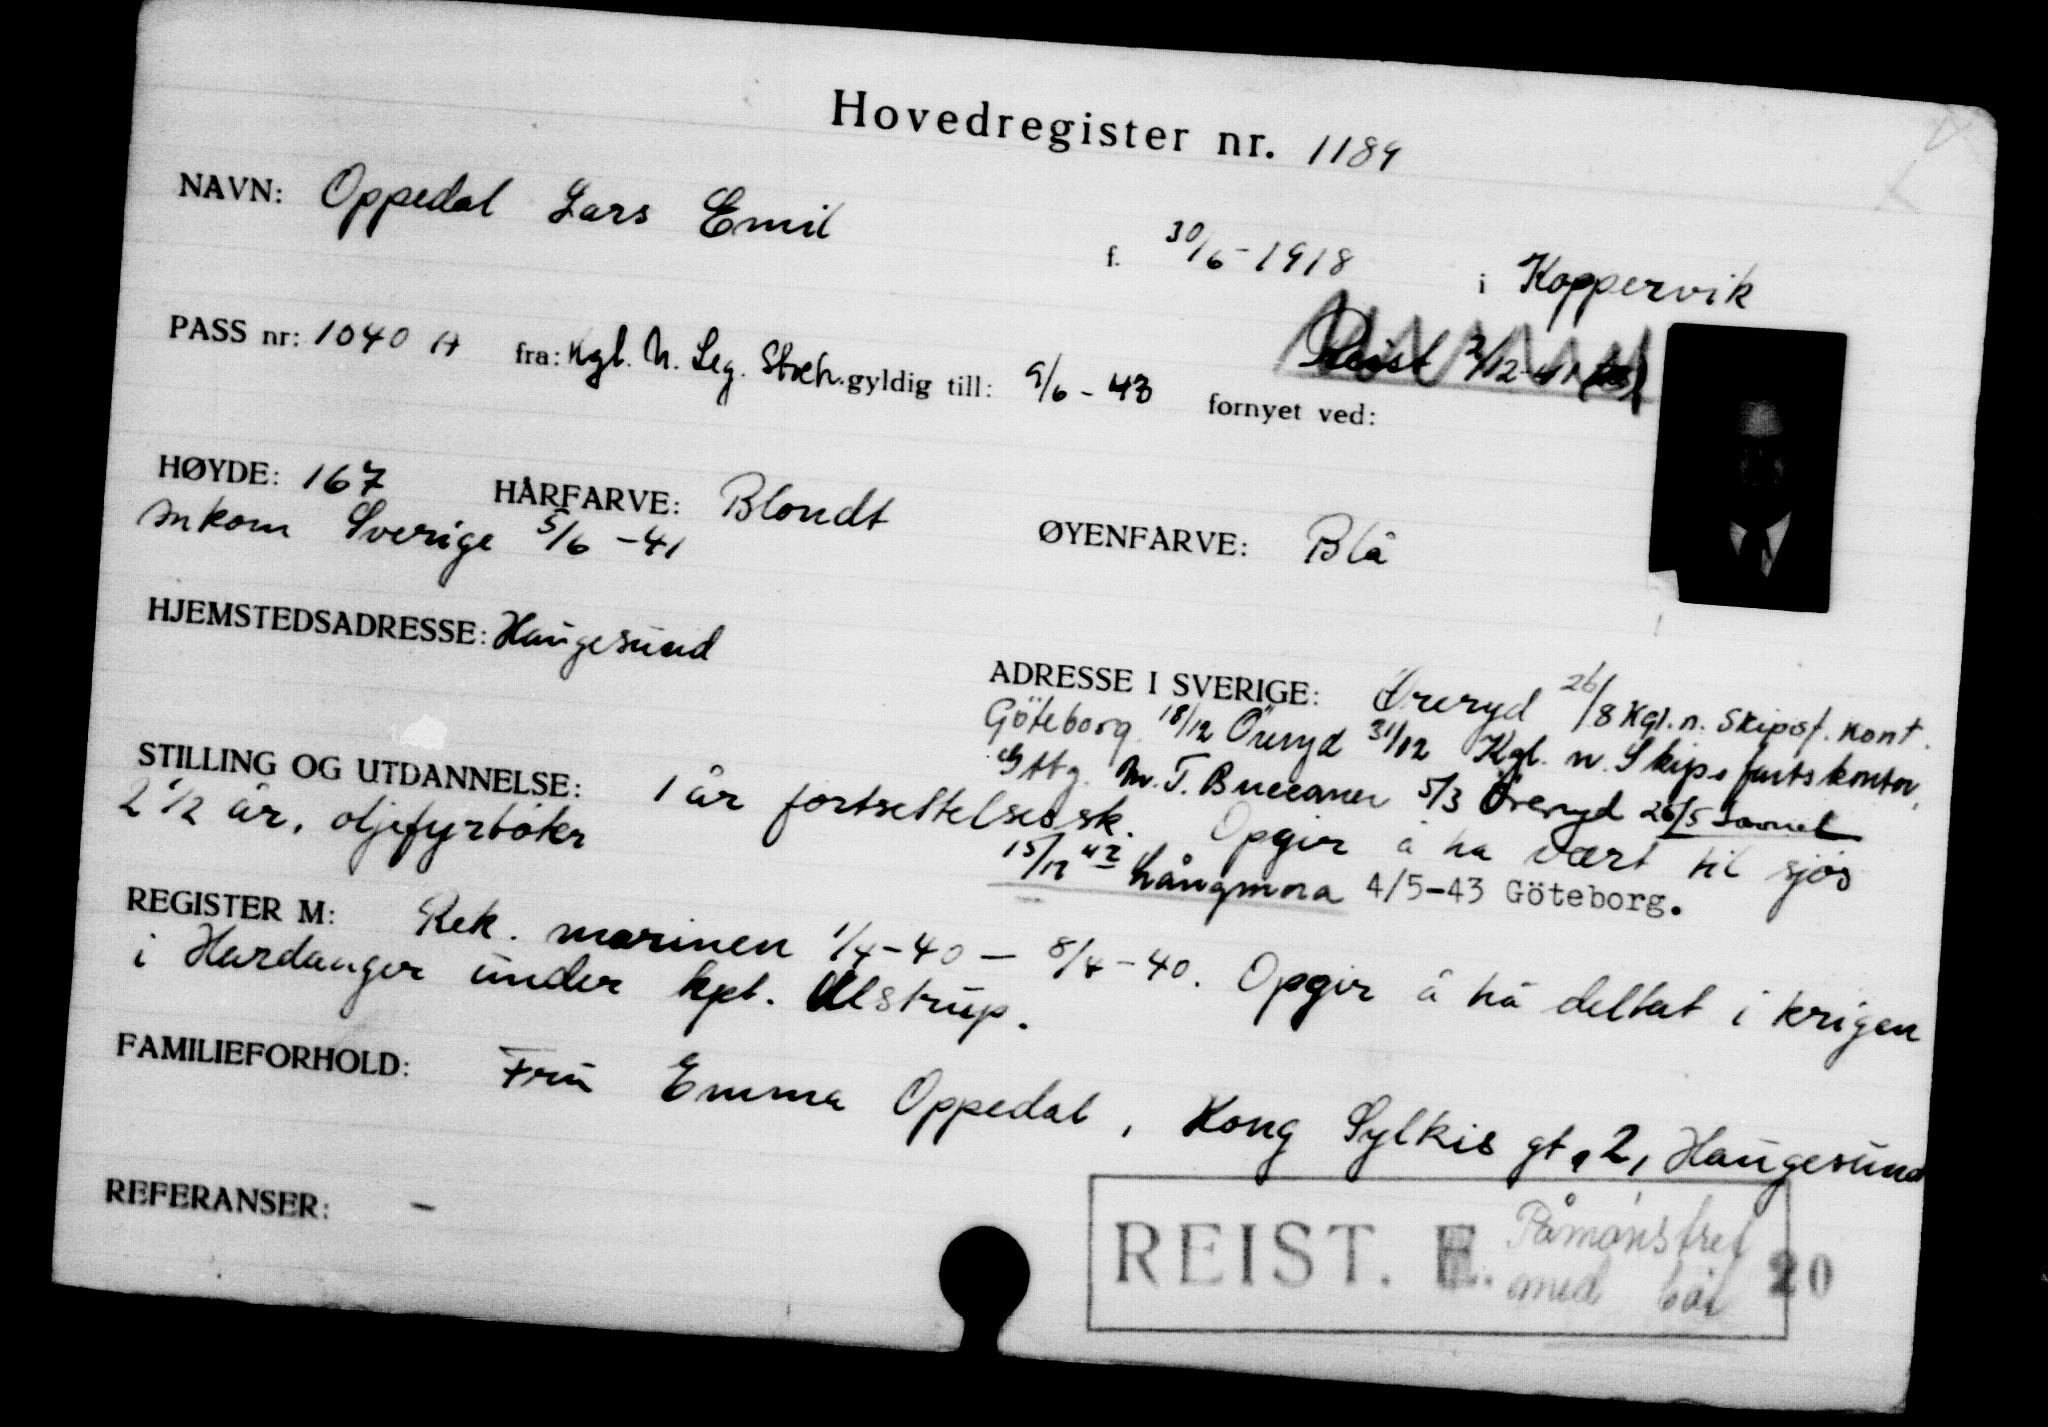 Hovedregister nr. 1189
NAVN: Oppedal Lars Emil f. 30/6-1918 i Koppervik
Reist 2/12-41
PASS nr: 1040 A fra: Kgl. N. Leg. Stockh. gyldig till: 9/6-43 fornyet ved:
HØYDE: 167 HÅRFARVE: Blondt ØYENFARVE: Blå
Innkom Sverige 5/6-41
HJEMSTEDSADRESSE: Haugesund
ADRESSE I SVERIGE: Öreryd 26/8 Kgl. n. Skipsf. kont.
Göteborg 18/12 Öreryd 31/12 Kgl. n. Skipsfartskontor,
Gtbg. M.T. Buccaneer 5/3 Öreryd 26/5
STILLING OG UTDANNELSE: 1 år fortsettelsessk. Opgir å ha vært til sjøs
2 1/2 år, oljefyrbøter
15/12 42 Långmora 4/5-43 Göteborg.
REGISTER M: Rek. marinen 1/4-40 — 8/4-40. Opgir å ha deltat i krigen
i Hardanger under kpt. Ulstrup.
FAMILIEFORHOLD: Fru Emma Oppedal, Kong Sylkis gt. 2, Haugesund
REFERANSER: -
REIST. E. 20
Påmønstret
med båt